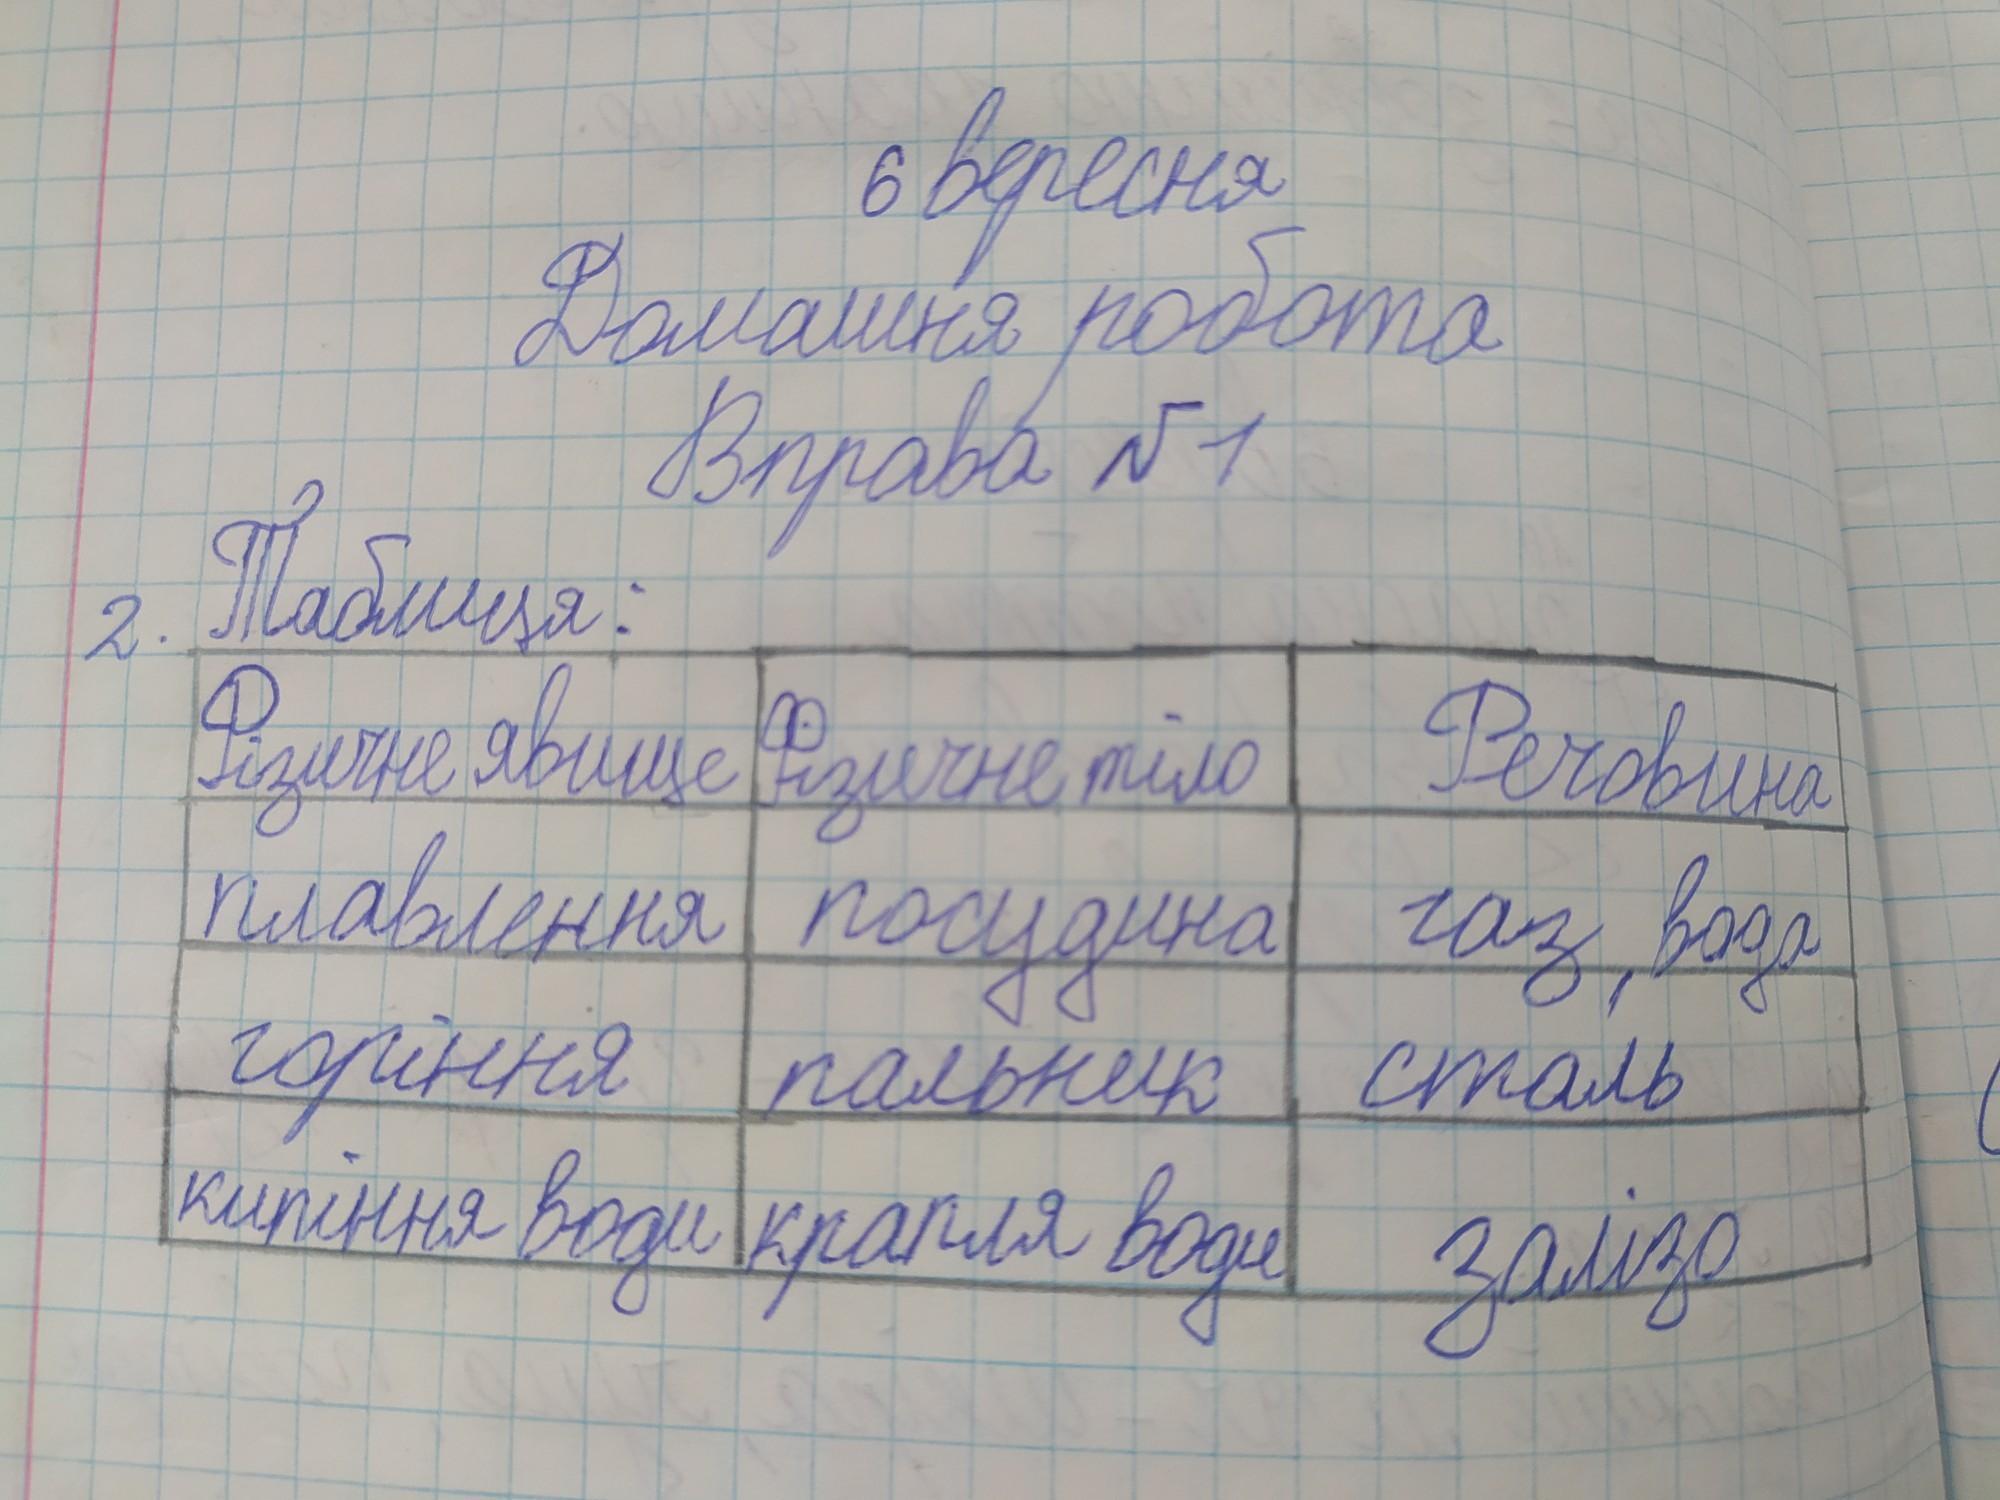 6 вересня
Домашня робота
Вправа №1
2. Таблиця:
Фізичне явище Фізичне тіло Речовина
плавлення посудина газ, вода
горіння пальник сталь
кипіння води крапля води залізо